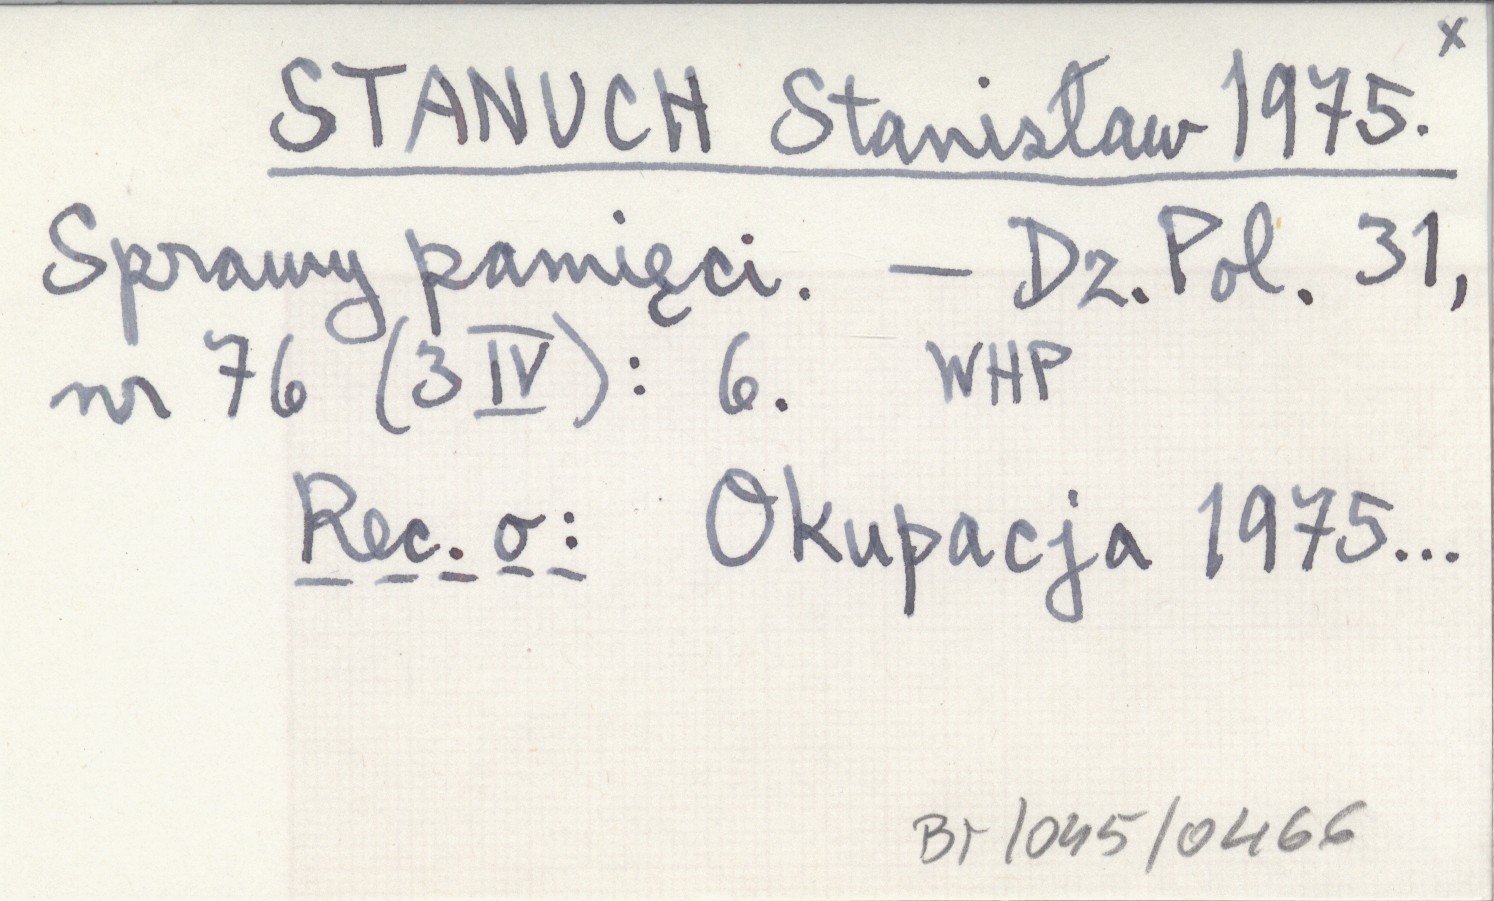 x
STANUCH Stanisław 1975.
Sprawy pamięci. — Dz. Pol. 31,
nr 76 (3 IV): 6. WHP
Rec. o: Okupacja 1975...
Br/045/0466